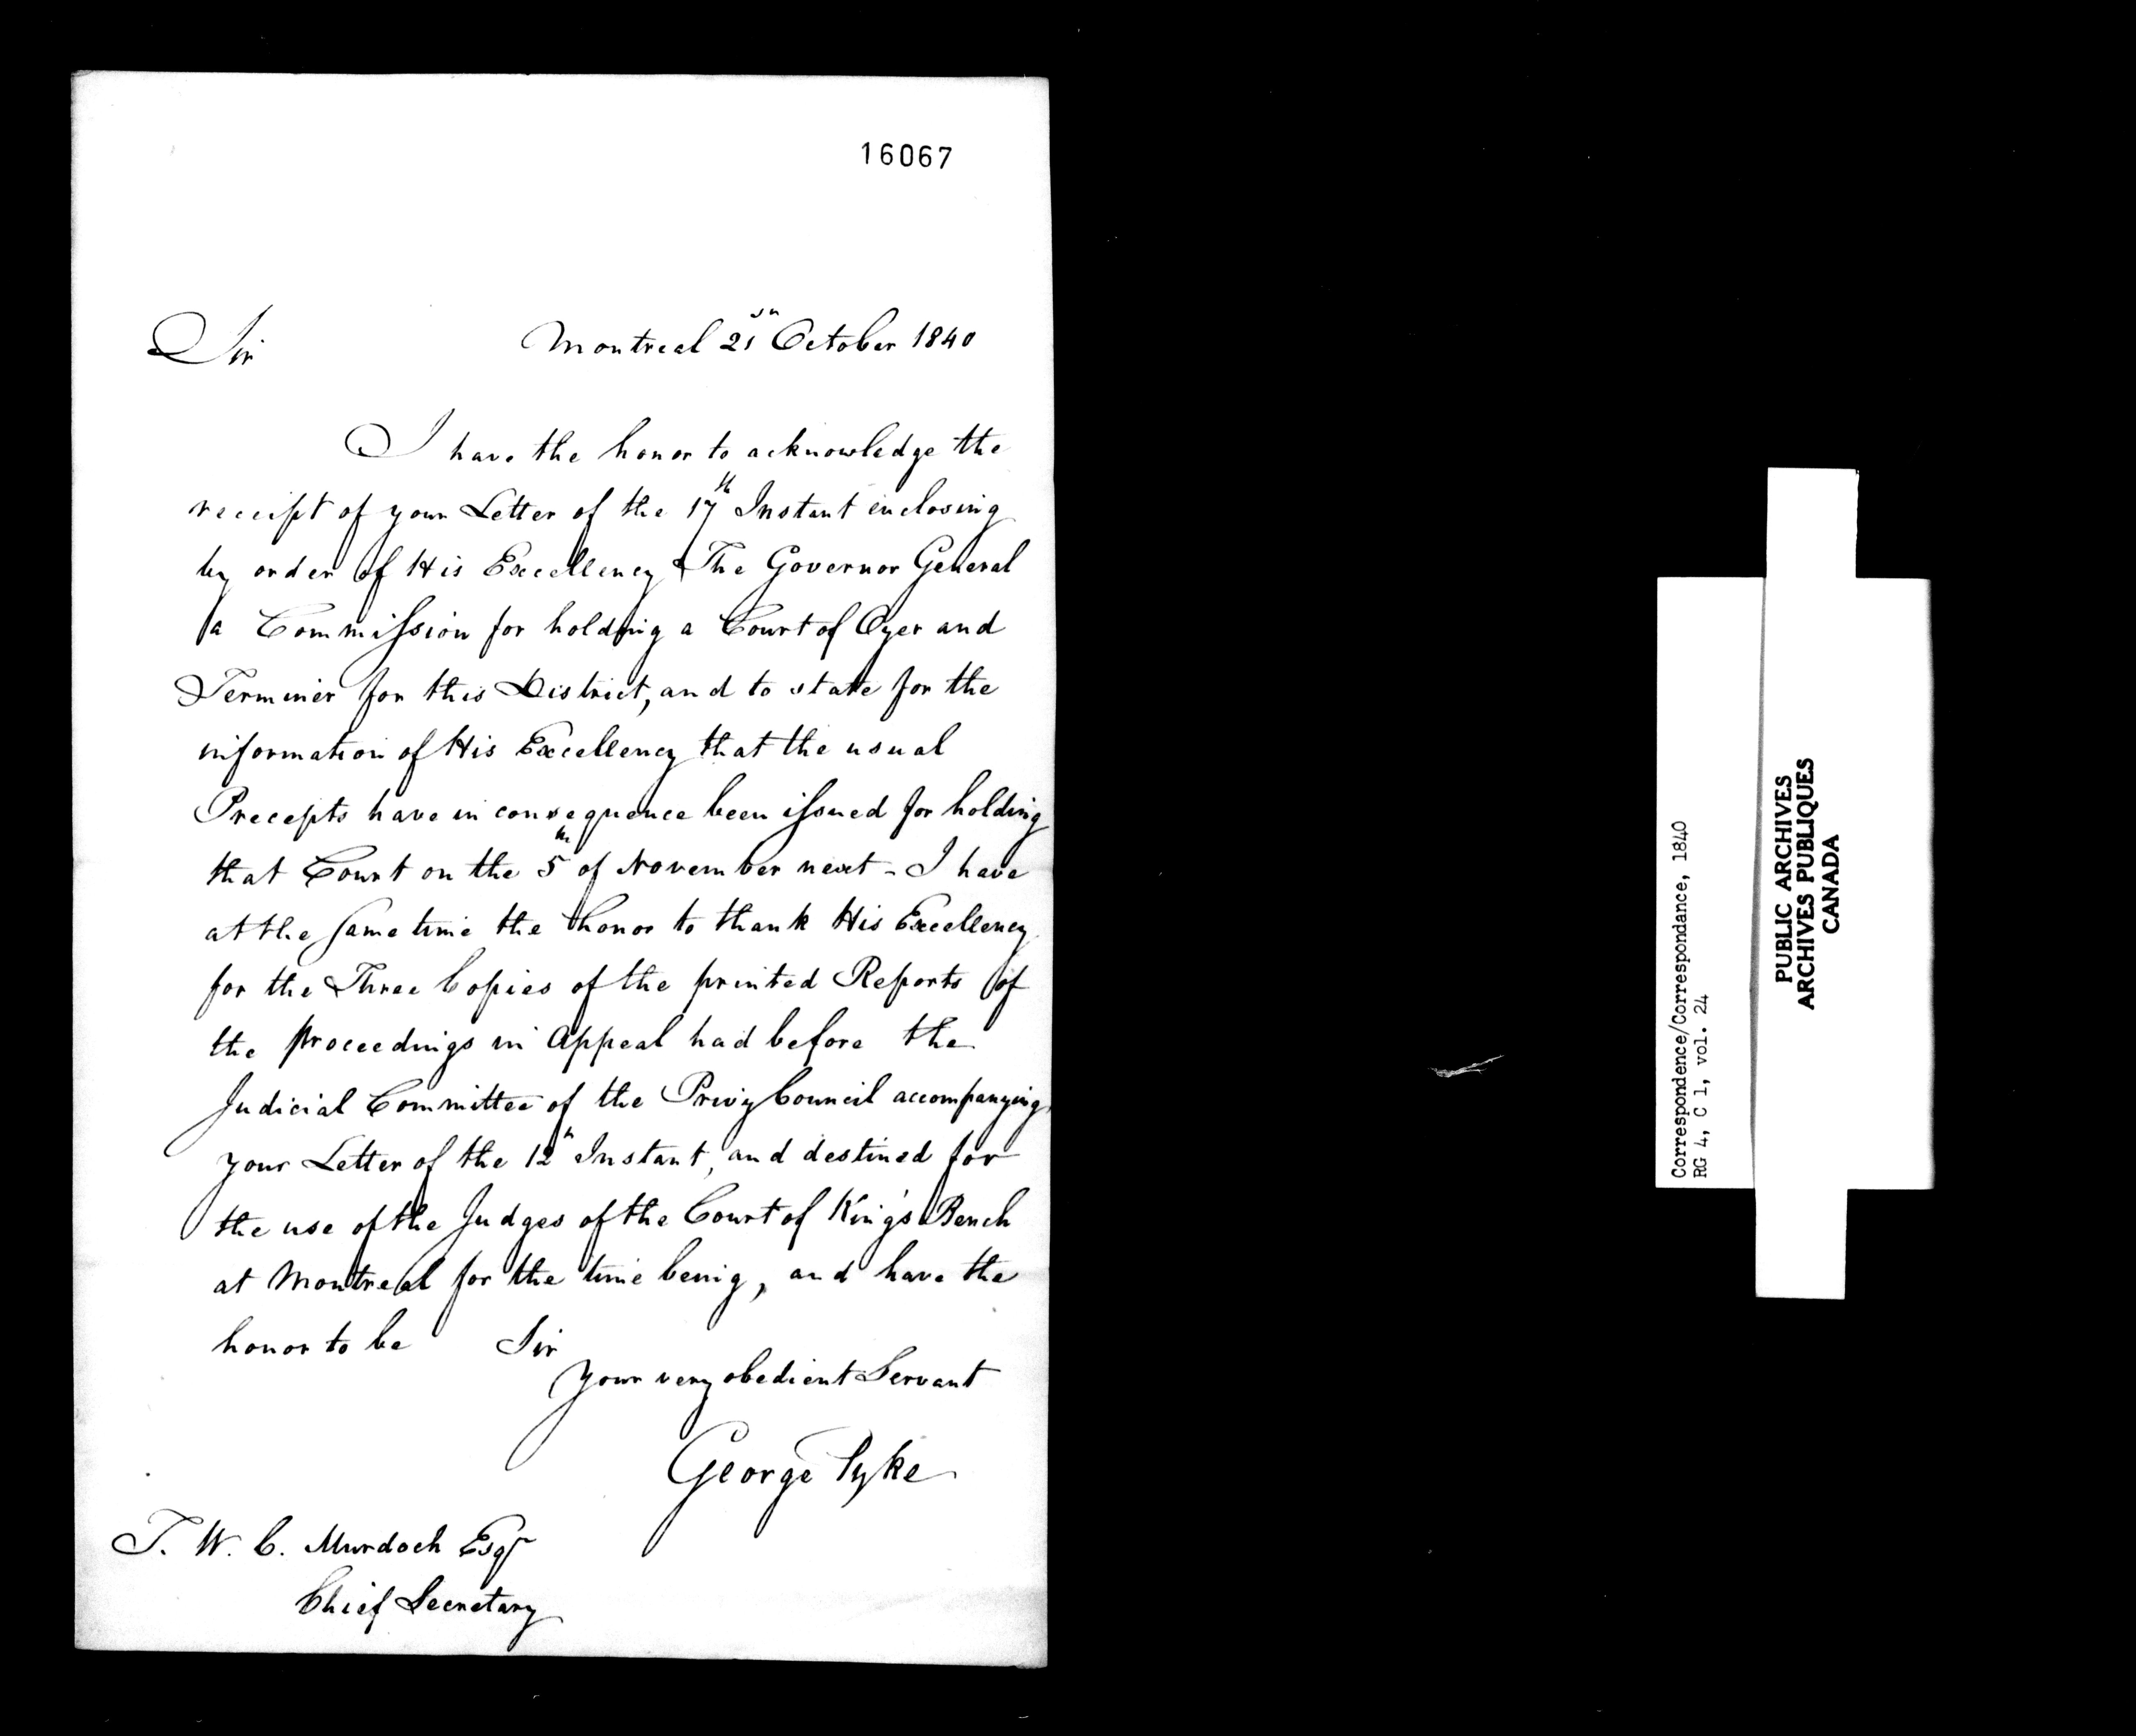 16067
Sir
Montreal 21st October 1840
I have the honor to acknowledge the
receipt of your Letter of the 17th Instant enclosing
by order of His Excellency The Governor General
a Commission for holding a Court of Oyer and
Terminer for this District, and to state for the
information of His Excellency that the usual
Precepts have in consequence been issued for holding
that Court on the 5th of November next - I have
at the same time the honor to thank His Excellency
for the Three Copies of the printed Reports of
the proceedings in Appeal had before the
Judicial Committee of the Privy Council accompanying
your Letter of the 12th Instant, and destined for
the use of the Judges of the Court of King's Bench
at Montreal for the time being, and have the
honor to be Sir
Your very obedient Servant
George Pyke
T. W. C. Murdoch Esqr
Chief Secretary
Correspondence/Correspondance, 1840
RG 4, C 1, vol. 24
PUBLIC ARCHIVES
ARCHIVES PUBLIQUES
CANADA